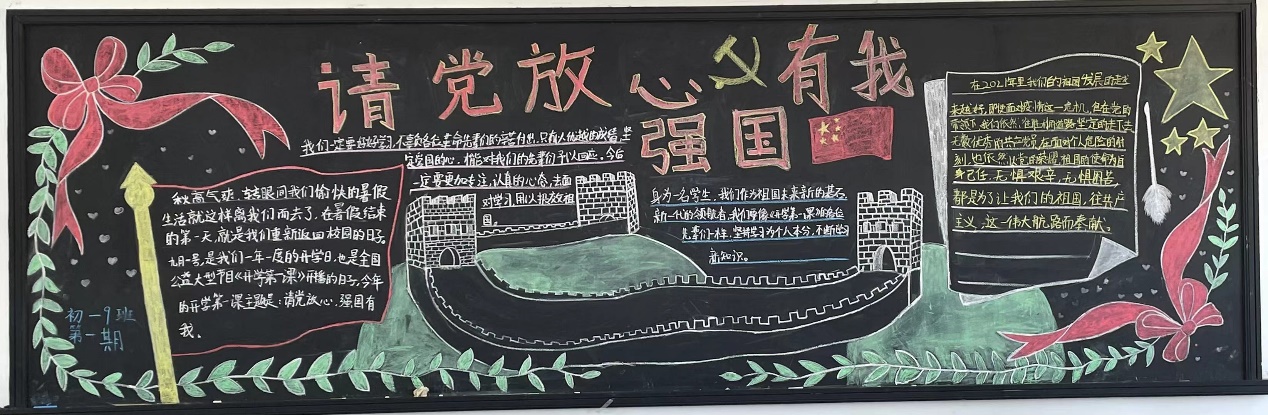 请党放心 有我
强国
我们一定要好好学习,不辜负各位革命先辈们的辛苦付出,只有人优越的成绩,坚
定爱国的心,才能对我们的先辈们予以回应,今后
一定要更加专注,认真的心态,去面
对学习,用以报效祖
国。
秋高气爽,转眼间我们愉快的暑假
生活就这样离我们而去了,在暑假结束
的第一天,就是我们重新返回校园的日子。
九月一号,是我们一年一度的开学日,也是全国
公益大型节目《开学第一课》开播的日子,今年
的开学第一课主题是:请党放心,强国有
我。
初一9班
第一期
身为一名学生,我们作为祖国未来新的基石
新一代的领航者,我们要像《开学第一课》那各位
先辈们一样,坚持学习为个人本分,不断的学习
新知识。
在2021年里我们的祖国发展的走上
来越好,即使面对疫情这一危机,但在党的
带领下,我们依然,在胜利的道路坚定的走下去
无数优秀的共产党员,在面对个人危险的时
刻,也依然,以党的荣耀,祖国的使命为自
身己任,无惧艰辛,无惧困苦,
都是为了让我们的祖国,往共产
主义,这一伟大航路而奉献。